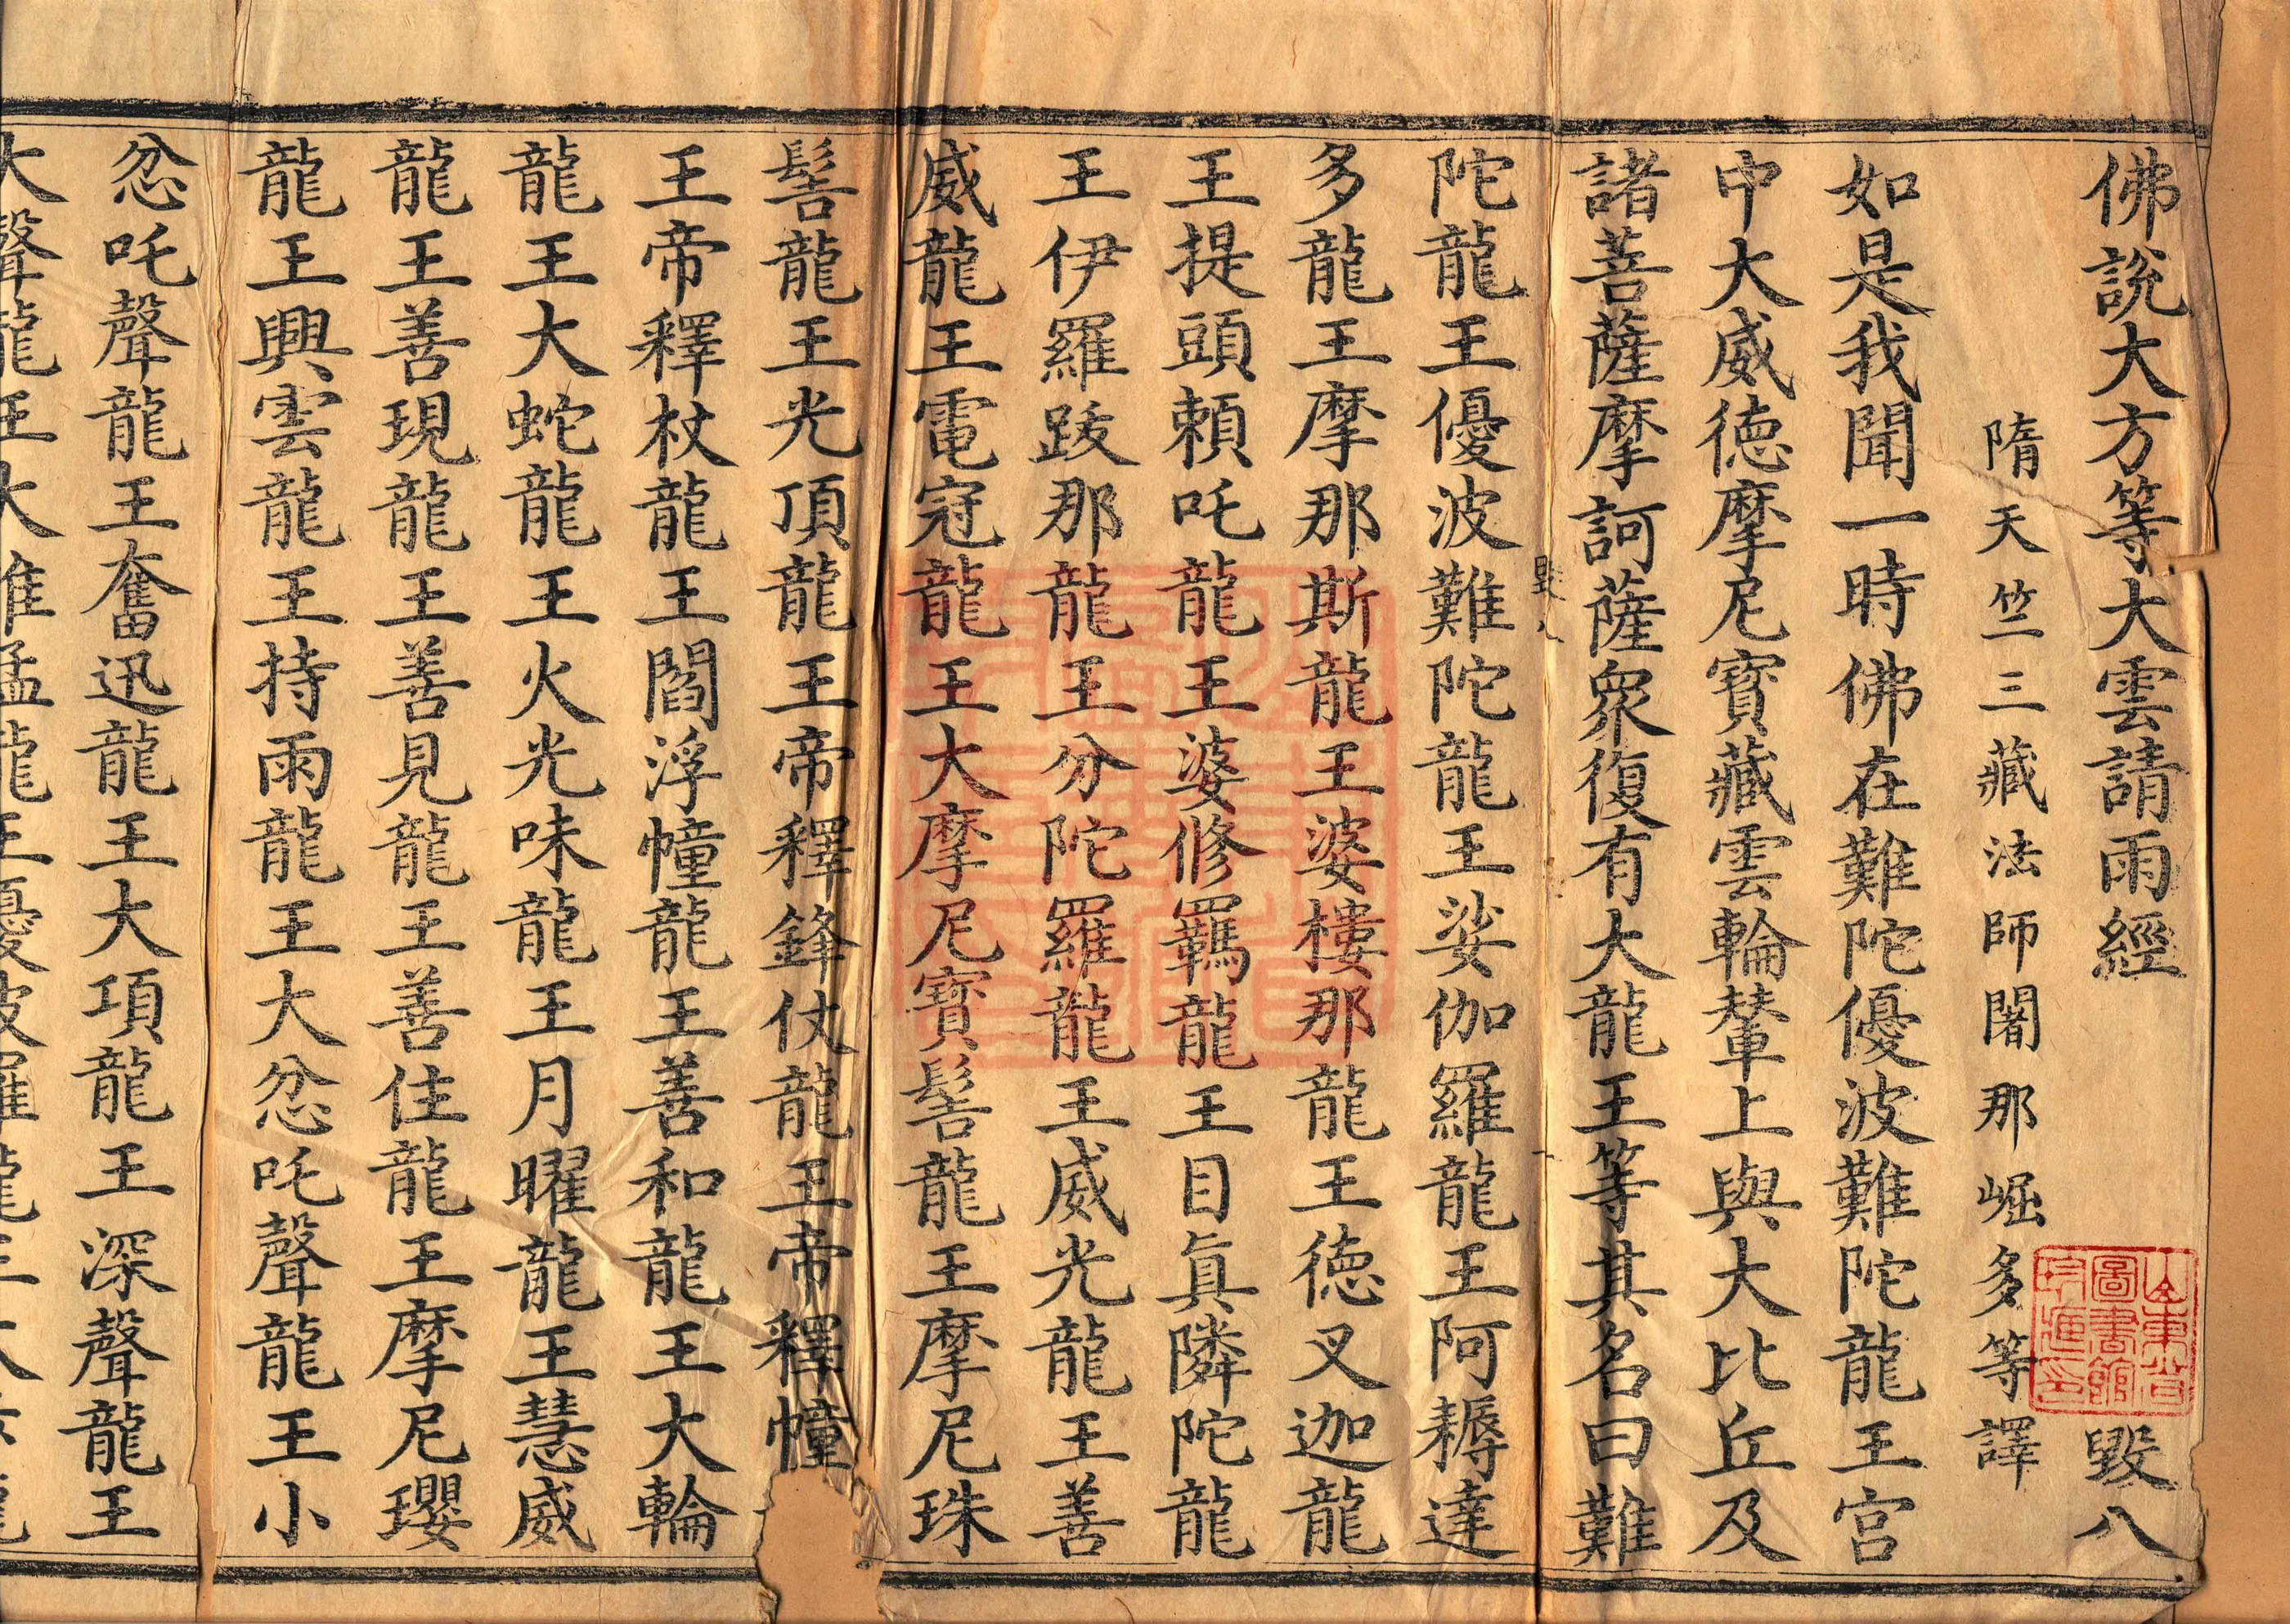 佛說大方等大雲請雨經　毀八
隋天竺三藏法師闍那崛多等譯
如是我聞一時佛在難陀優波難陀龍王宮
中大威德摩尼寶藏雲輪輦上與大比丘及
諸菩薩摩訶薩眾復有大龍王等其名曰難
陀龍王優波難陀龍王娑伽羅龍王阿耨達
多龍王摩那斯龍王婆樓那龍王德叉迦龍
王提頭賴吒龍王婆修羈龍王目真隣陀龍
王伊羅跋那龍王分陀羅龍王威光龍王善
威龍王電冠龍王大摩尼寶髻龍王摩尼珠
髻龍王光頂龍王帝釋鋒仗龍王帝釋幢
王帝釋杖龍王閻浮幢龍王善和龍王大輪
龍王大蛇龍王火光味龍王月曜龍王慧威
龍王善現龍王善見龍王善住龍王摩尼瓔
龍王興雲龍王持雨龍王大忿吒聲龍王小
忿吒聲龍王奮迅龍王大項龍王深聲龍王
大聲龍王大雄猛龍王優波羅龍王大
山東省圖書館珍藏印